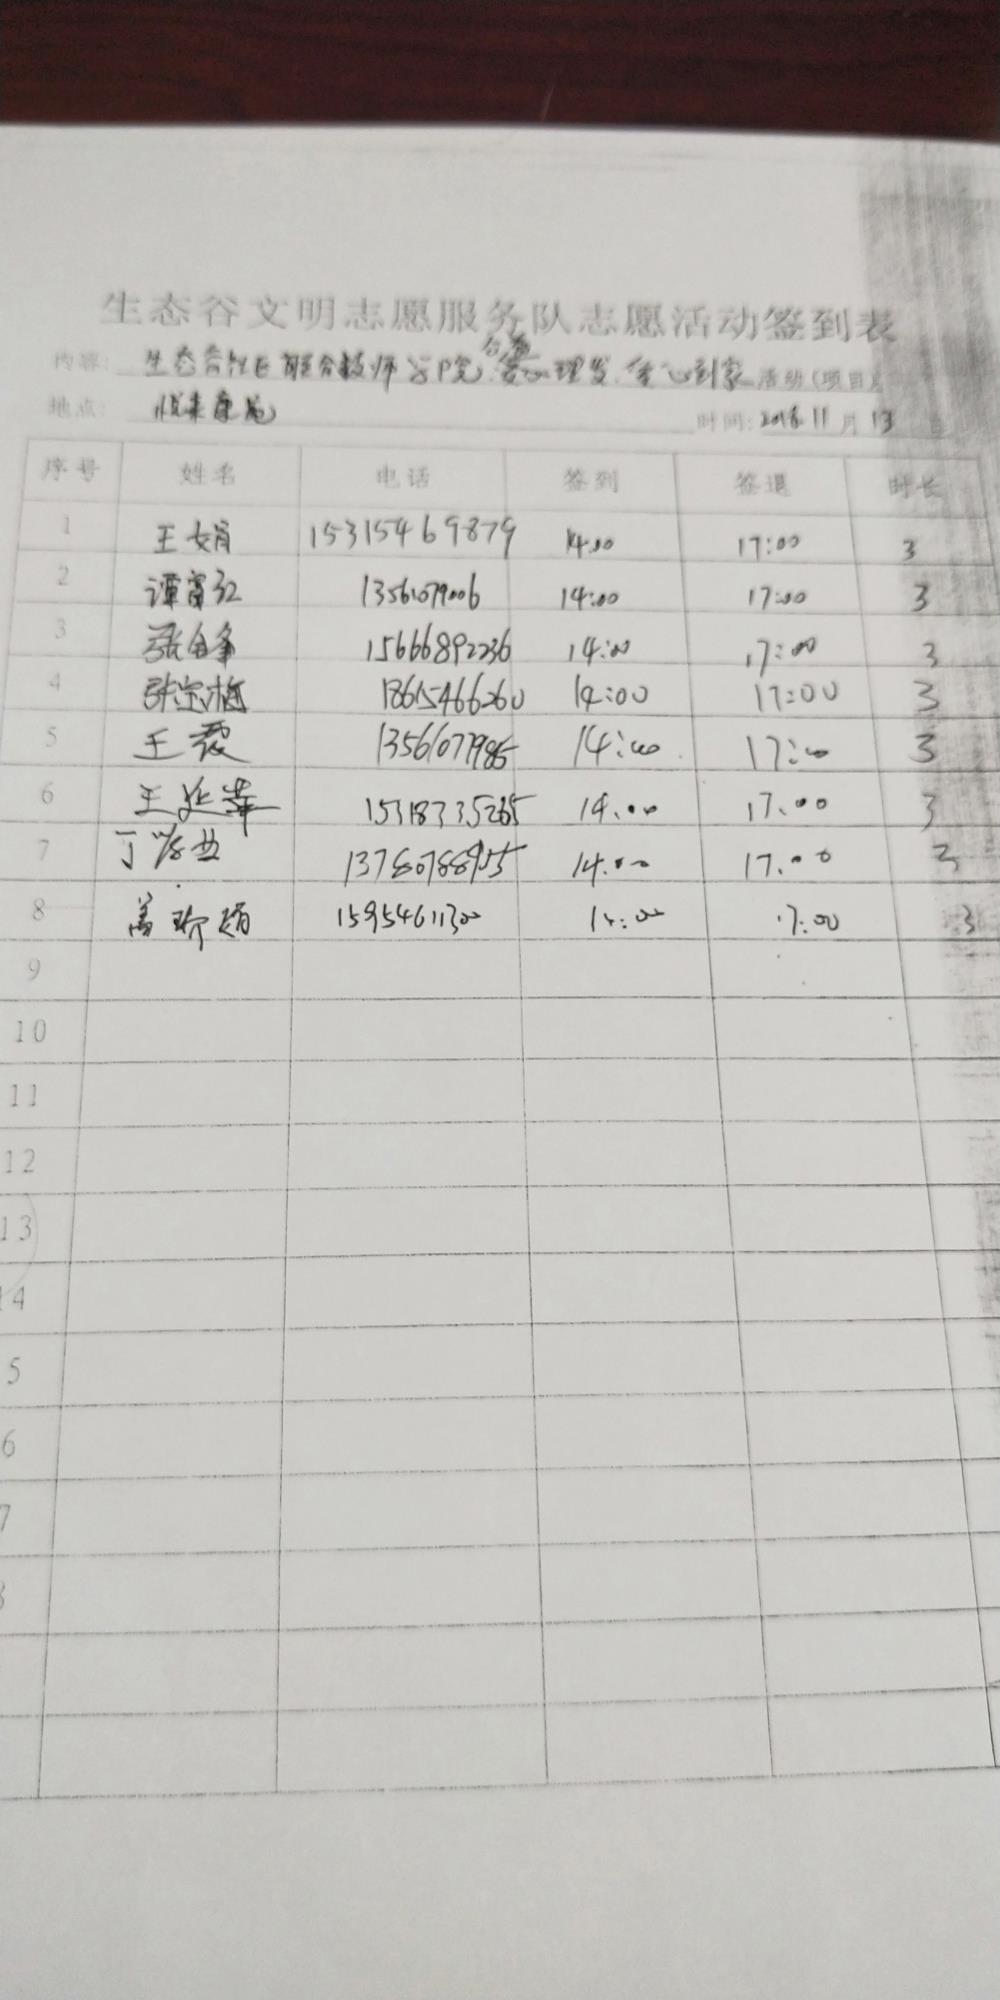 生态谷文明志愿服务队志愿活动签到表
内容: 生态谷社区联合教师学院 公益 爱心理发,爱心到家 活动(项目)
地点: 时间:2018.11月13日
序号 姓名 电话 签到 签退 时长
1 王娟 15315469879 14:00 17:00 3
2 谭富红 13561079006 14:00 17:00 3
3 15666892236 14:00 17:00 3
4 张宝梅 18615466260 14:00 17:00 3
5 王霞 13561077985 14:00 17:00 3
6 王延萍 15318735265 14.00 17.00 3
7 丁 13780788955 14.00 17.00 3
8 盖 娟 15954611300 14:00 17:00 3
9
10
11
12
13
14
5
6
7
8